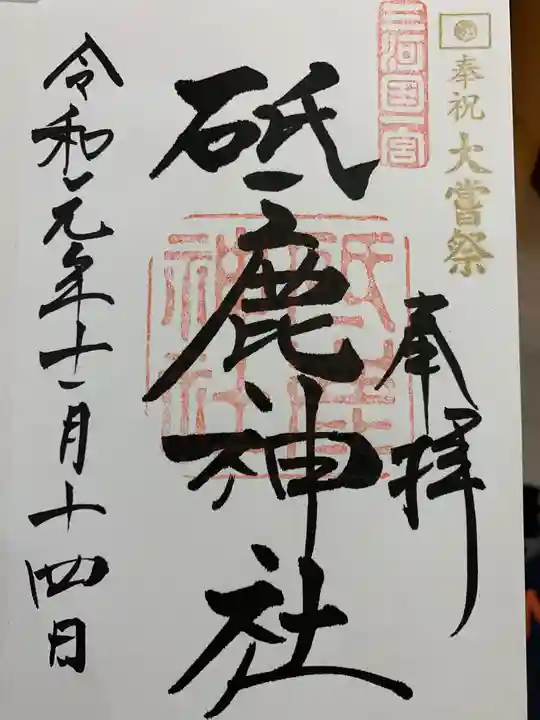 奉祝 大嘗祭
三河国一宮
奉拝
砥鹿神社
令和元年十一月十四日